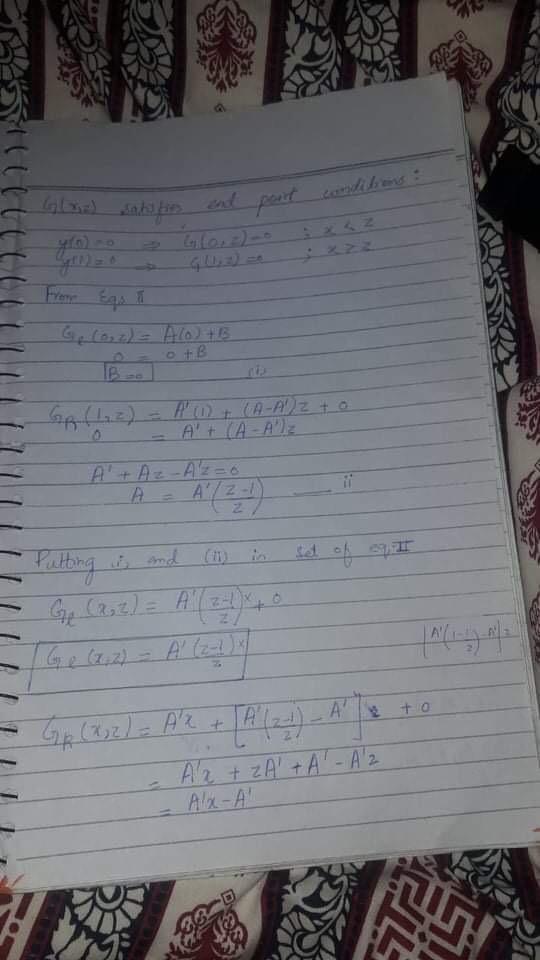 G(x,z) satisfies end point conditions:
y(0)=0 ⇒ G(0,z)=0 ; x<z
y(1)=0 ⇒ G(1,z)=0 ; x>z
From Eqs II
Gℓ(0,z) = A(0)+B
0 = 0+B
B=0 (i)
G_R(1,z) = A'(1) + (A-A')z + 0
0 = A' + (A-A')z
A' + Az - A'z = 0
A = A'((z-1)/z) —— ii
Putting i, and (ii) in set of eq II
Gℓ(x,z) = A'((z-1)/z)x + 0
Gℓ(x,z) = A'((z-1)/z)x
[A'(1-1/z)-A']z
G_R(x,z) = A'x + [A'((z-1)/z) - A']z + 0
= A'x + zA' + A' - A'z
= A'x - A'